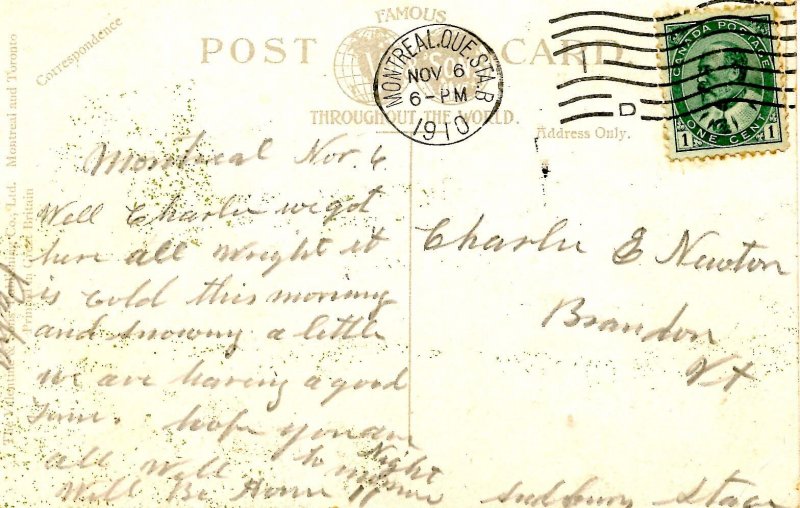 FAMOUS
POST CARD.
THROUGHOUT THE WORLD.
Correspondence
Address Only.
MONTREAL.QUE.STA.B
NOV 6
6-PM
1910
D
CANADA POSTAGE
1 ONE CENT 1
Montreal and Toronto
Montreal Nov. 6
Well Charlie we got
here all Wright it
is cold this morning
and snowing a little
we are having a good
time. hope you are
all Well
Night
Will Be Home
Sudbury Stage
Charlie E Newton
Brandon
Vt